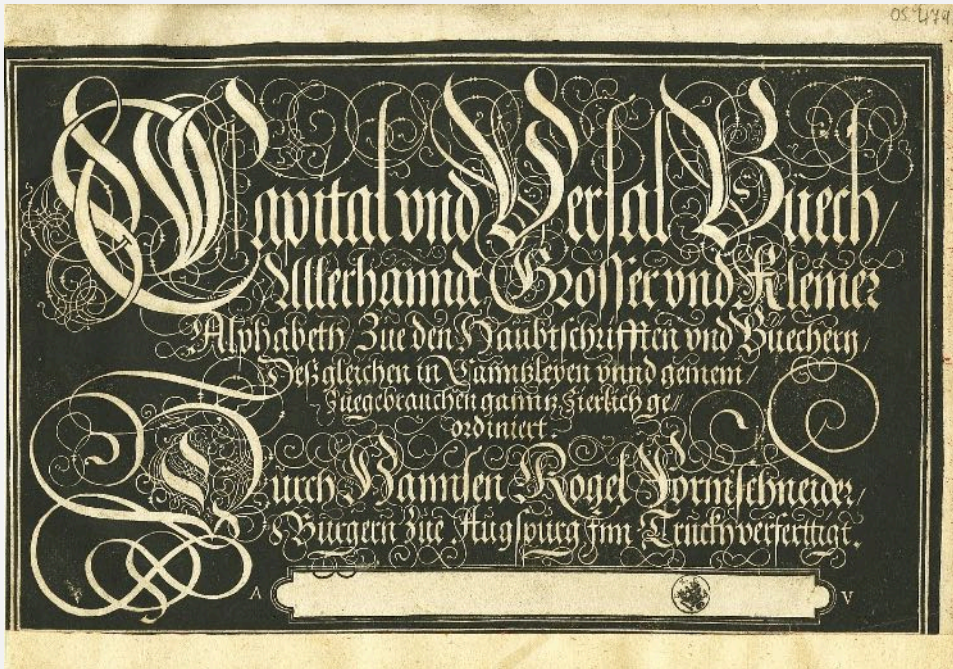 OS. 479
Capital vnd Versal Buech/
Allerhanndt Grosser vnd Kleiner
Alphabeth Zue den Haubtschrifften vnd Büechern/
Deßgleichen in Canntzleyen vnnd gemein/
Zuegebrauchen ganntz Zierlich ge//
ordiniert
Durch Hannsen Rogel Formschneider/
Burgern Zue Augspurg Jnn Truckh verferttigt.
A V